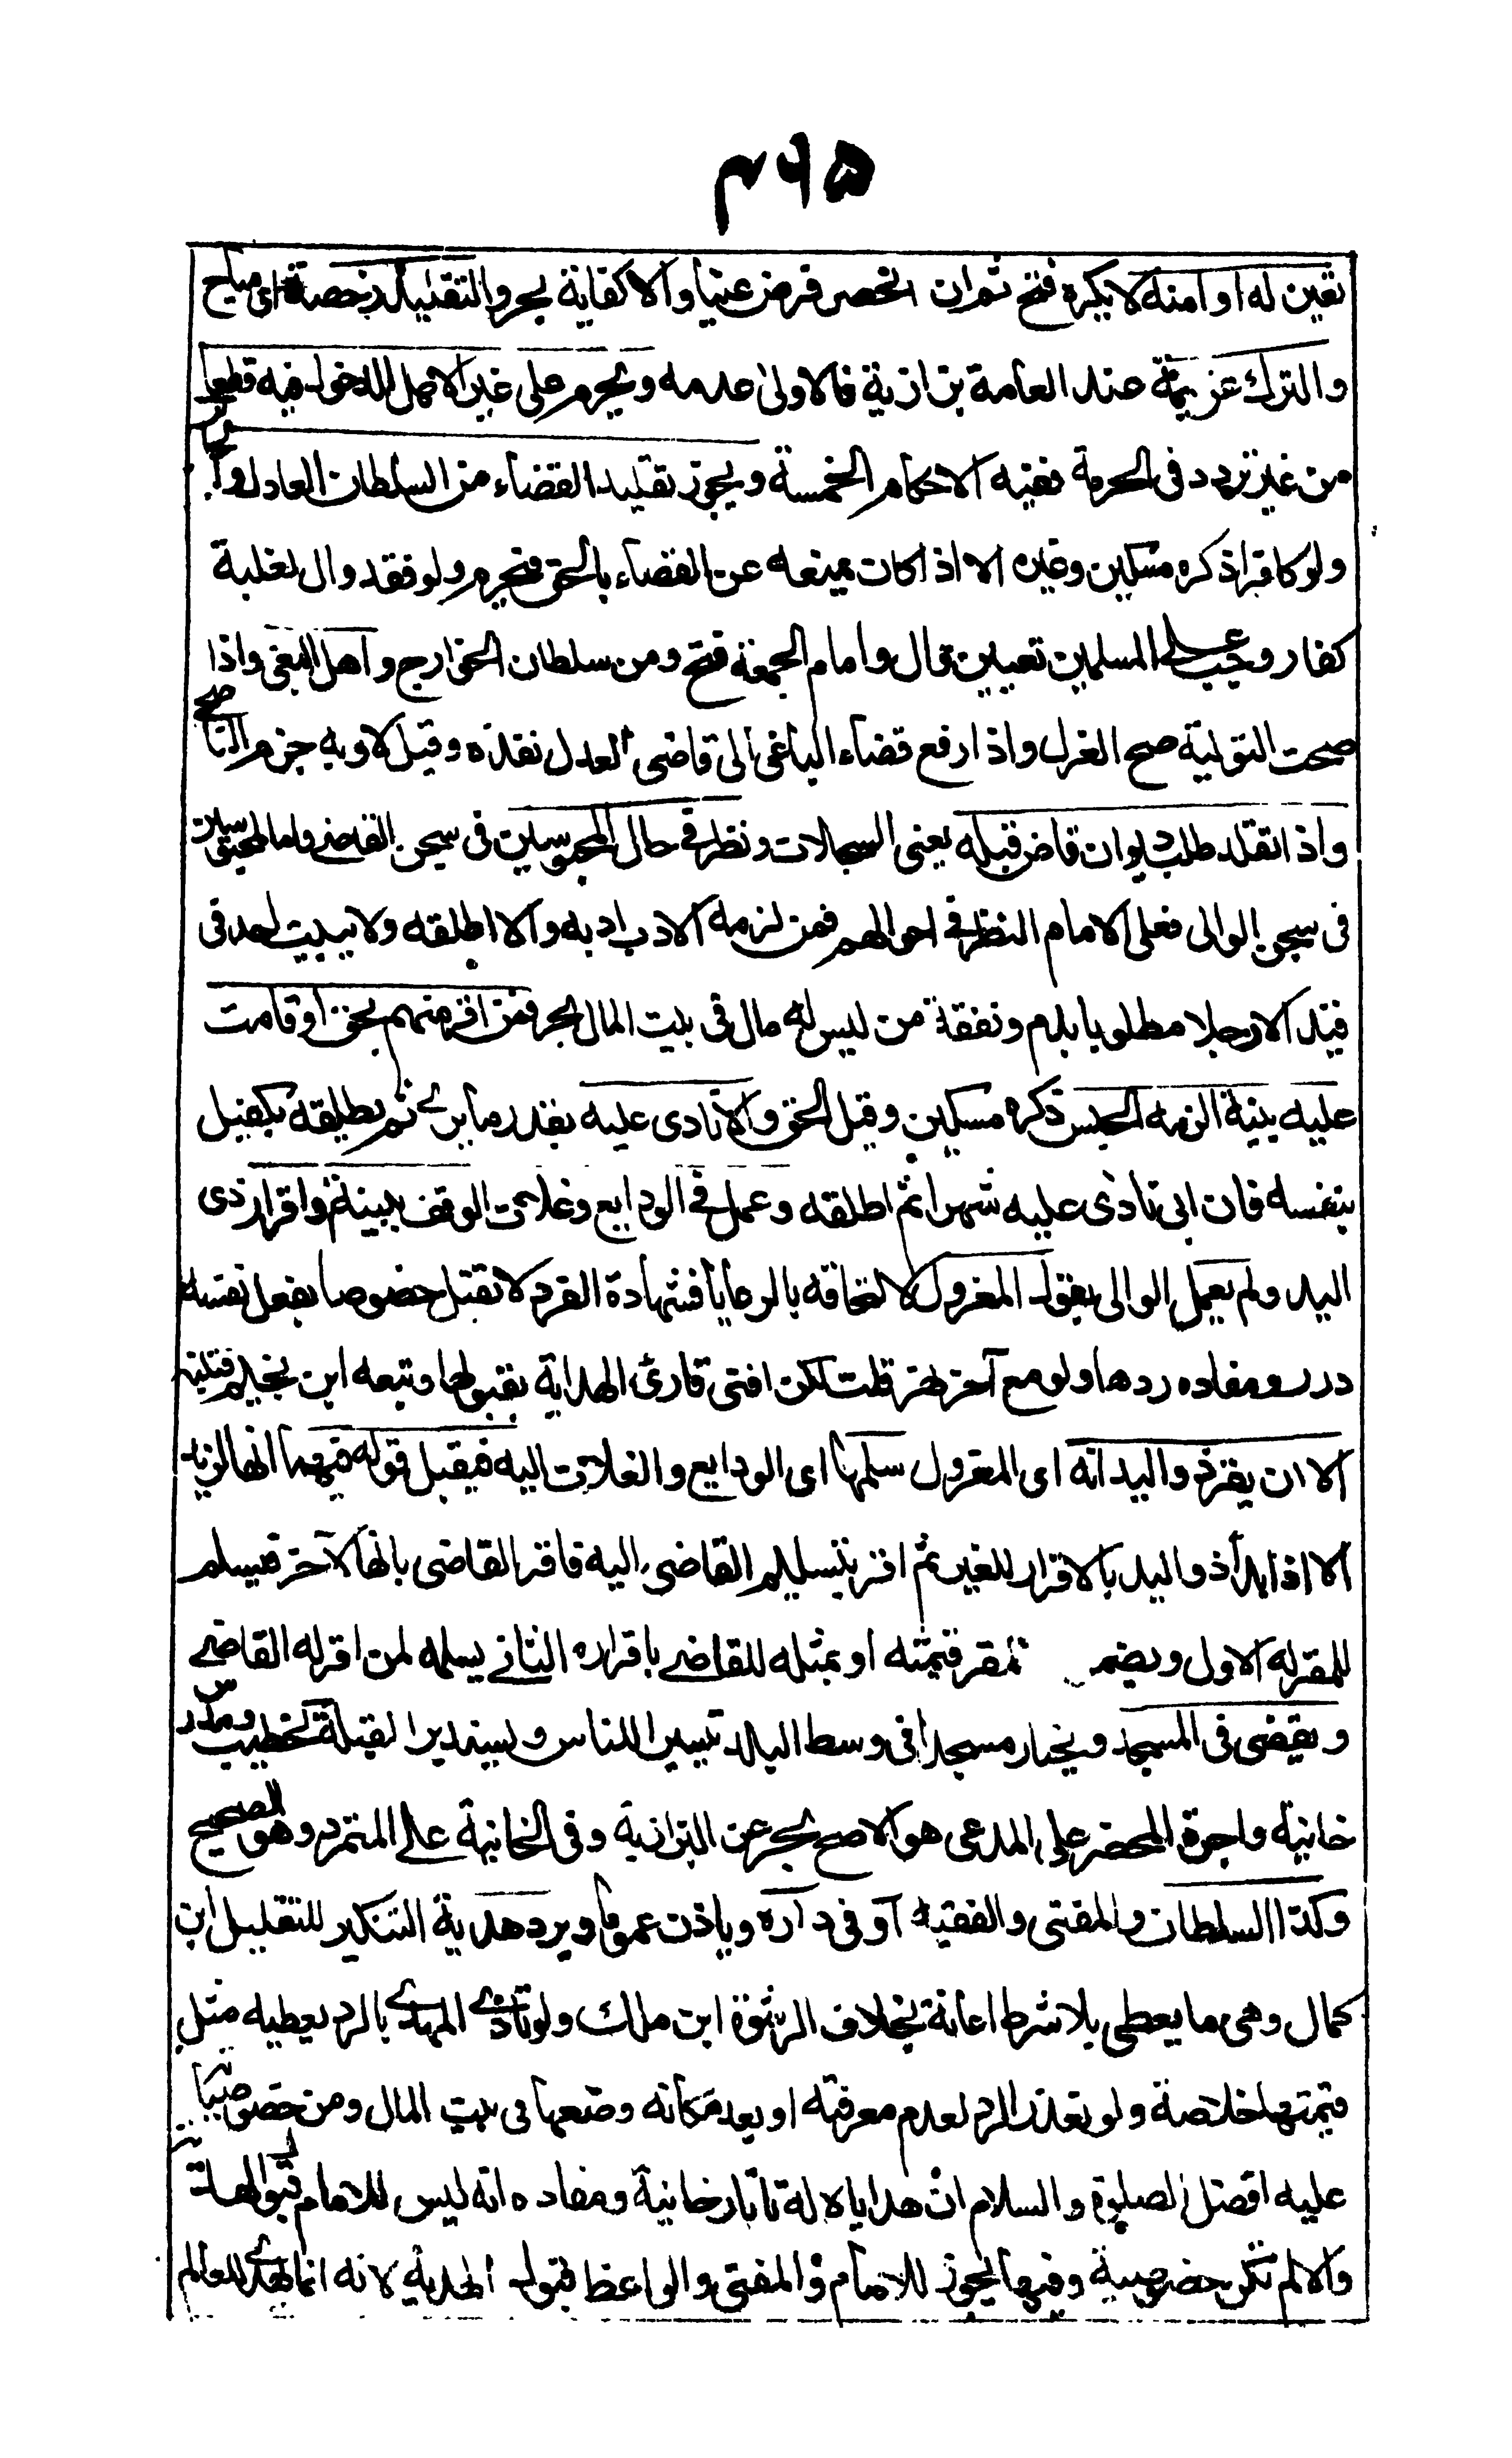 ٤٦٥
تعين له او امنه لا يكره فتح ثم ان انحصر فرض عينا والا كفاية بحر والتقليد رخصة اى مباح
والترك عزيمة عند العامة بزازية فالاولى عدمه ويحرم على غير الاهل الدخول فيه قطعا
من غير تردد فى الحرمة ففيه الاحكام الخمسة ويجوز تقليد القضاء من السلطان العادل والجائر
ولو كافرا ذكره مسكين وغيره الا اذا كان يمنعه عن القضاء بالحق فيحرم ولو فقد وال لغلبة
كفار وجب على المسلمين تعيين وال وامام الجمعة فتح ومن سلطان الخوارج واهل البغى واذا
صحت التولية صح العزل واذا رفع قضاء الباغى الى قاضى العدل نفذه وقيل لا وبه جزم الناصحى
واذا تقلد طلب ديوان قاض قبله يعنى السجلات ونظر فى حال المحبوسين فى سجن القاضى واما المحبوسين
فى سجن الوالى فعلى الامام النظر فى احوالهم فمن لزمه الادب ادبه والا اطلقه ولا يبيت احد فى
قيد الا رجلا مطلوبا بدم ونفقة من ليس له مال فى بيت المال بحر فمن اقر منهم بحق او قامت
عليه بينة الزمه الحبس ذكره مسكين وقيل الحق والا نادى عليه بقدر ما يرى ثم يطلقه بكفيل
بنفسه فان ابى نادى عليه شهرا ثم اطلقه وعمل فى الودايع وغلات الوقف ببينة واقرار ذى
اليد ولم يعمل الوالى بقول المعزول لالتحاقه بالرعايا فشهادة الفرد لا تقبل خصوصا بفعل نفسه
درر ومفاده ردها ولو مع آخر نهر قلت لكن افتى قارئ الهداية بقبولها وتبعه ابن نجيم فتنبه
الا ان يقر ذو اليد انه اى المعزول سلمها اى الودايع والغلات اليه فيقبل قوله فيهما انها لزيد
الا اذا بدأ ذو اليد بالاقرار للغير ثم اقر بتسليم القاضى اليه فاقر القاضى بانها لآخر فيسلم
للمقر له الاول ويضمن المقر قيمته او بمثله للقاضى باقراره الثانى يسلمه لمن اقر له القاضى
ويقضى فى المسجد ويختار مسجدا فى وسط البلد تيسيرا للناس ويستدبر القبلة كخطيب ومدرس
خانية واجرة المحضر على المدعى هو الاصح بحر عن البزازية وفى الخانية على المتمرد وهو الصحيح
وكذا السلطان والمفتى والفقيه او فى داره وياذن عموما ويرد هدية التنكير للتقليل ابن
كمال وهى ما يعطى بلا شرط اعانة بخلاف الرشوة ابن ملك ولو تاذى المهدى بالرد يعطيه مثل
قيمتها خلاصة ولو تعذر الرد لعدم معرفته او بعد مكانه وضعها فى بيت المال ومن خصوصياته
عليه افضل الصلوة والسلام ان هدايا لا له تاتارخانية ومفاده انه ليس للامام قبول الهدية
والا لم تكن خصوصية وفيها يجوز للامام والمفتى والواعظ قبول الهدية لانه انما يهدى للعالم